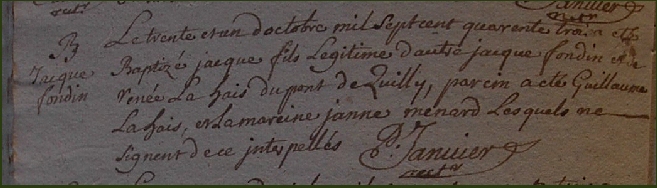 B
Jacque
fondin
Le trente et un d'octobre mil Sept cent quarente trois a eté
Baptizé jacque fils Legitime d'autre jacque fondin et de
renée La hais du pont de Quilly, parein a eté Guillaume
La hais, et La mareine janne menard Lesquels ne
signent de ce interpellés P. Janvier
rectr